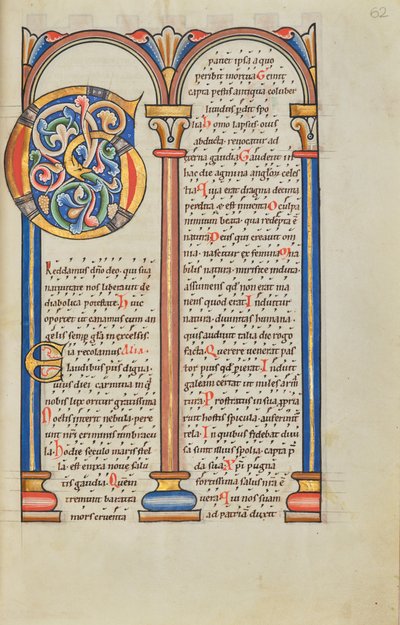 62
G
Reddamus dño deo. qui sua
natiuitate nos liberauit de
diabolica potestate. Huic
oportet ut canamus cum an
gelis semp gła in excelsis.
Eia recolamus. Alia.
laudibus piis digna.
huius diei carmina in q̃
nobis lux oritur gratissima
Noctis interit nebula. pere
unt nr̃i criminis umbracu
la. Hodie seculo maris stel
la. est enixa noue salu
tis gaudia. Quem
tremunt baratra
mors cruenta
pauet ipsa a quo
peribit mortua Gemit
capta pestis antiqua coluber
liuidus p̃dit spo
lia Homo lapsus. ouis
abducta. reuocatur ad
eterna gaudia Gaudent in
hac die agmina angloꝝ celes
tia. Qua erat dragma decima
perdita. & est inuenta O culpa
nimium beata. qua redempta ẽ
natura Deus qui creauit om
nia. nascitur ex femina Mira
bilis natura. mirifice induta.
assumens qd̃ non erat ma
nens quod erat. Induitur
natura. diuinitas humana.
quis audiuit talia dic rogo
facta. Querere uenerat pas
tor pius qd̃ perierat. Induit
galeam certat ut miles arma
tura. Prostratus in sua ꝓpria
ruit hostis spicula. auferunt̃
tela. In quibus fidebat diui
sa sunt illius spolia. capta p̃
da sua. Xp̃i pugna
fortissima salus nr̃a ẽ
uera. Qui nos suam
ad patriã duxit